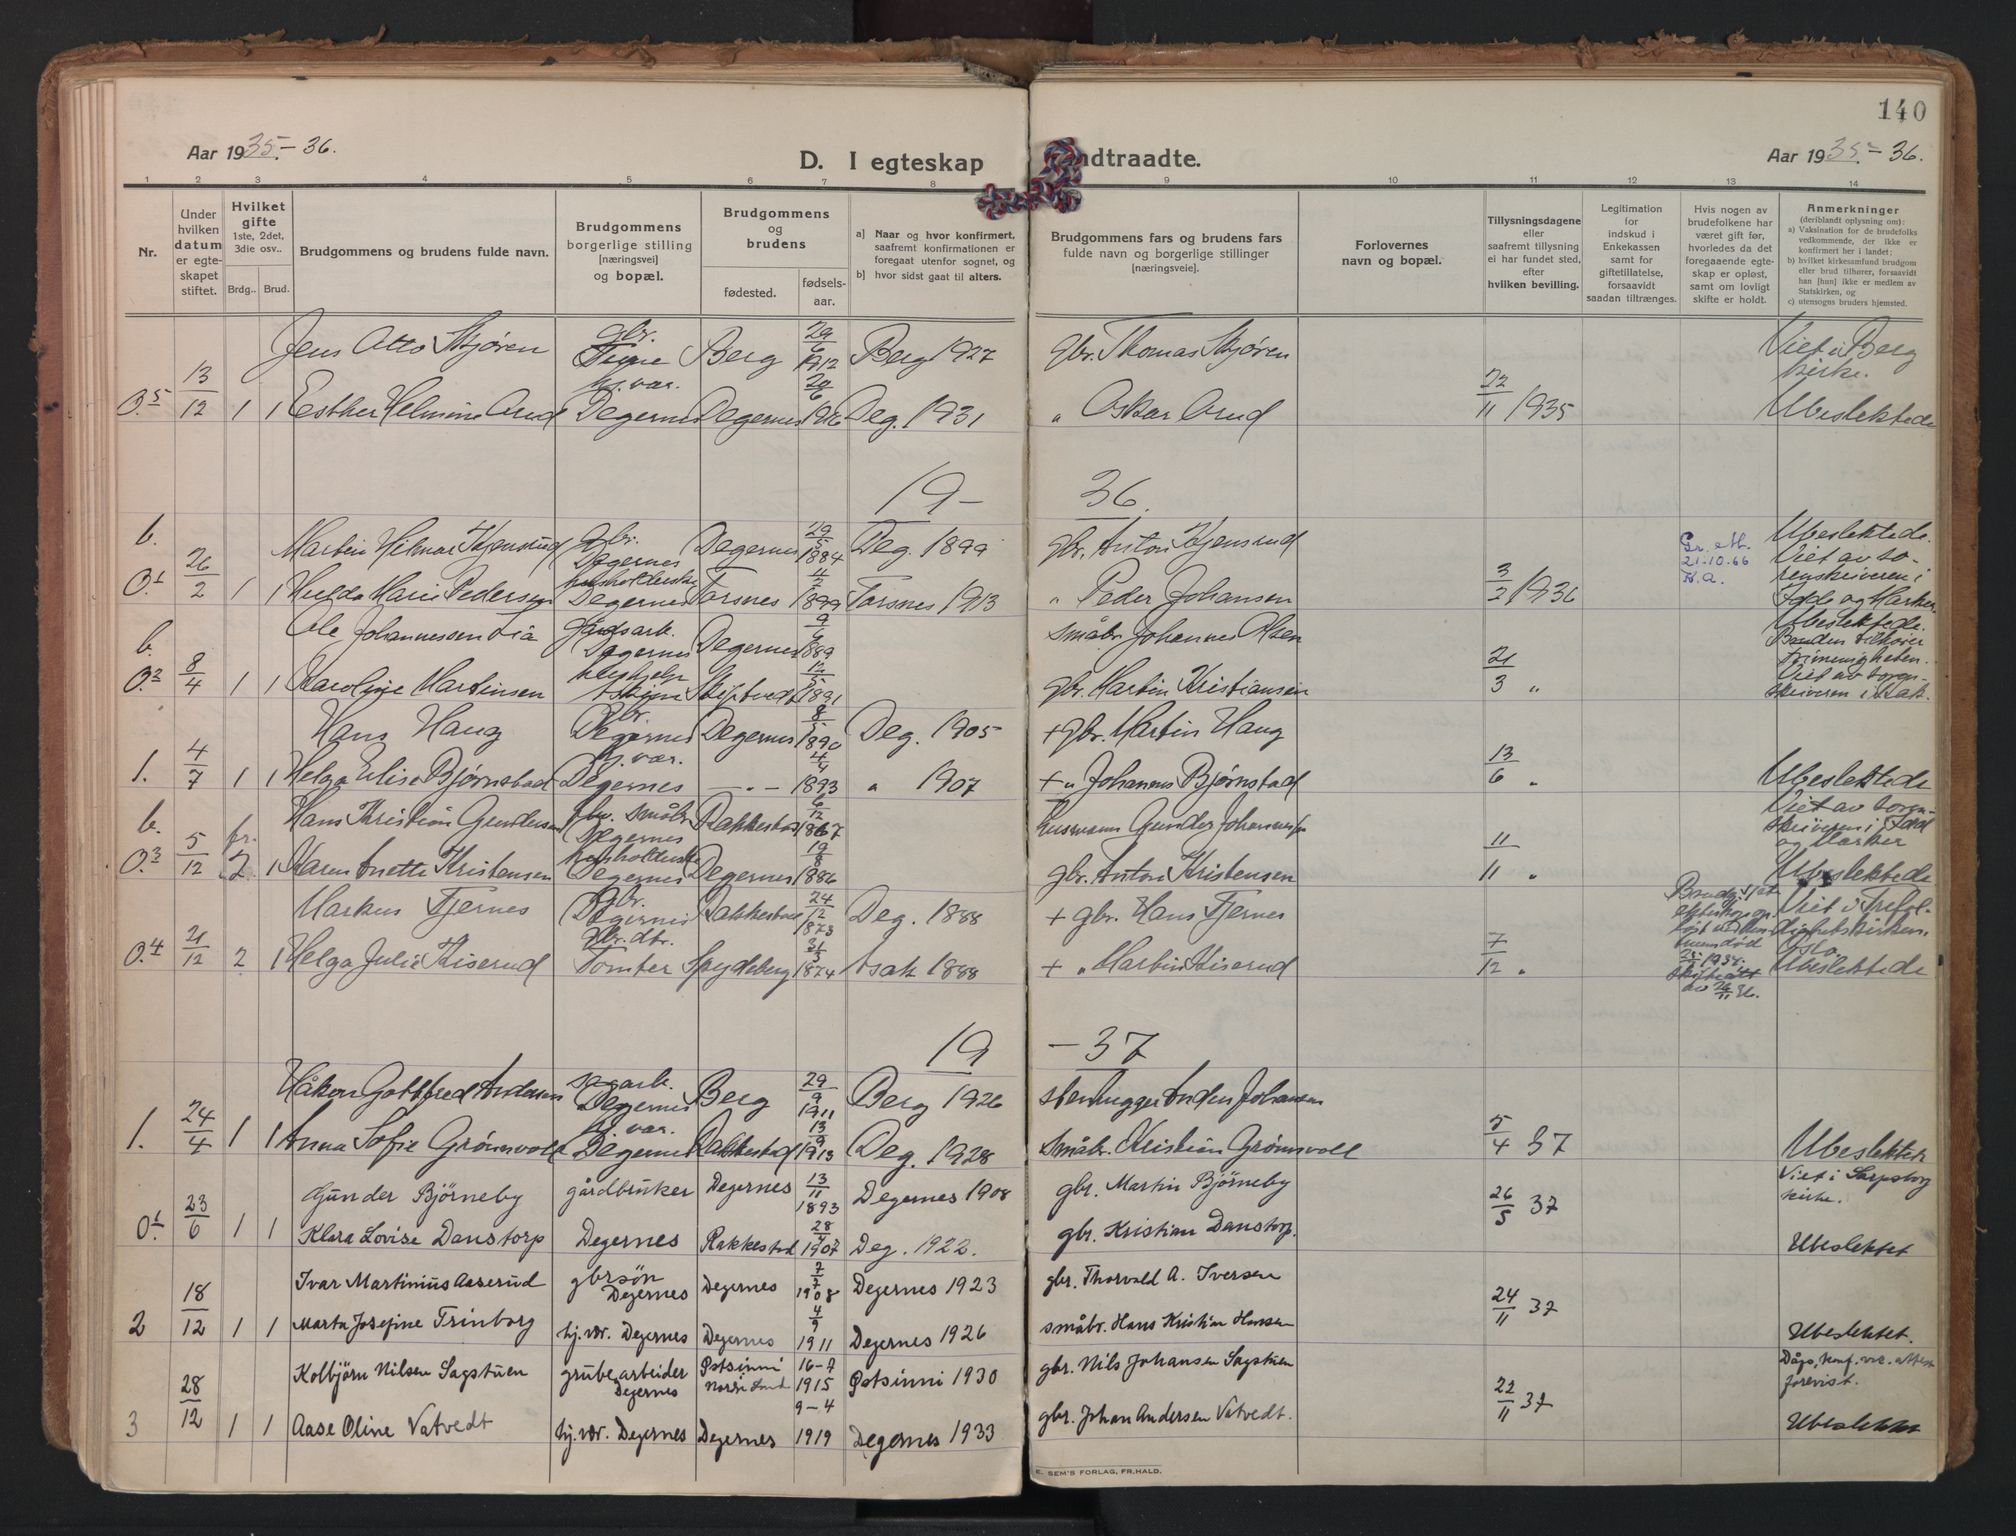 140
Aar 1935.-36.
D. I egteskap indtraadte.
Aar 1935.-36.
1 2 3 4 5 6 7 8 9 10 11 12 13 14
Nr.
Under hvilken datum er egteskapet stiftet.
Hvilket gifte 1ste, 2det, 3die osv..
Brdg.. Brud.
Brudgommens og brudens fulde navn.
Brudgommens borgerlige stilling [næringsvei] og bopæl.
Brudgommens og brudens
fødested.
fødselsaar.
a] Naar og hvor konfirmert, saafremt konfirmationen er foregaat utenfor sognet, og
b] hvor sidst gaat til alters.
Brudgommens fars og brudens fars fulde navn og borgerlige stillinger [næringsvei].
Forlovernes navn og bopæl.
Tillysningsdagene eller saafremt tillysning ei har fundet sted, efter hvilken bevilling.
Legitimation for indskud i Enkekassen samt for giftetillatelse, forsaavidt saadan tiltrænges.
Hvis nogen av brudefolkene har været gift før, hvorledes da det foregaaende egteskap er opløst, samt om lovligt skifte er holdt.
Anmerkninger (deriblandt oplysning om):
a) Vaksination for de brudefolks vedkommende, der ikke er konfirmert her i landet;
b) hvilket kirkesamfund brudgom eller brud tilhører, forsaavidt han [hun] ikke er medlem av Statskirken, og
c) utensogns bruders hjemsted.
Jens Otto Skjøren gbr. Berg 29/6 1912 Berg 1927 gbr. Thomas Skjøren Viet i Berg kirke.
0.5 13/12 1 1 Esther Helmine Orud hj. vær. Degernes Degernes 1916 Deg. 1931 " Oskar Orud 22/11 1935 Ubeslektede
19- 36.
b. Martin Hilmar Kjensrud gbr. Degernes Degernes 29/5 1884 Deg. 1899 gbr. Anton Kjensrud Ubeslektede. Viet av sorenskriveren i Idd og Marker.
21.10.66 K.A.
0.1 26/2 1 1 Hulda Marie Pedersen Degernes Torsnes 1899 Torsnes 1913 " Peder Johansen 3/2 1936
b. Ole Johannessen Lia Degernes Degernes 1889 småbr. Johannes Olsen Ubeslektede. Bruden tilhører frimenigheten. Viet av sorenskriveren i Rak.
0.2 8/4 1 1 Karoline Martinsen Askim Skiptvedt 1891 gbr. Martin Kristiansen 21/3 "
Hans Haug gbr. Degernes Degernes 8/5 1890 Deg. 1905 + gbr. Martin Haug
1. 4/7 1 1 Helga Elise Bjørnstad hj. vær. Degernes - " - 4/4 1893 " 1907 + " Johannes Bjørnstad 13/6 " Ubeslektede
b. Hans Kristian Gundersen fhv. småbr. Degernes Rakkestad 6/12 1867 husmann Gunder Johannesen Viet av sorenskriveren i Idd og Marker
0.3 5/12 fr. 2 1 Karen Anette Kristensen Degernes Degernes 19/8 1886 gbr. Anton Kristensen 11/11 " Ubeslektede
Markus Fjernes gbr. Degernes Rakkestad 24/12 1873 Deg. 1888 + gbr. Hans Fjernes Viet i Trefoldighetskirken Oslo.
0.4 21/12 2 1 Helga Julie Kiserud gbr. dtr. Tomter Spydeberg 31/3 1874 Askim 1888 + " Martin Kiserud 7/12 " Ubeslektede
19 -37
Håkon Gottfred Andersen sagarb. Degernes Berg 29/9 1911 Berg 1926 stenhugger Anden Johansen
1. 24/4 1 1 Anna Sofie Grönnvoll hj. vær. Degernes Rakkestad 13/9 1913 Deg. 1928 Småbr. Kristian Grönnvoll 5/4 37 Ubeslektet
Gunder Björneby gårdbruker Degernes 13/11 1893 Degernes 1908 gbr. Martin Björneby Viet i Sarpsborg kirke.
0.1 23/6 1 1 Klara Lovise Danstorp Degernes Rakkestad 28/4 1907 Deg. 1922. gbr. Kristian Danstorp. 26/5 37 Ubeslektet
Ivar Martinius Aaserud gbrsön Degernes Degernes 7/7 1908 Degernes 1923 gbr. Thorvald A. Iversen
2 18/12 1 1 Marta Josefine Trinborg hj. vær. Degernes Degernes 4/9 1911 Degernes 1926 småbr. Hans Kristian Hansen 24/11 37 Ubeslektet.
Kolbjörn Nilsen Sagstuen grubearbeider Degernes Östsinni 16-7 1915 Östsinni 1930 gbr. Nils Johansen Sagstuen Dåps, konf. vac. attest forevist.
3 28/12 1 1 Aase Oline Vatvedt hj. vær. Degernes Degernes 9-4 1919 Degernes 1933 gbr. Johan Andersen Vatvedt. 22/11 37 Ubeslektet
E. SEM'S FORLAG, FR.HALD.